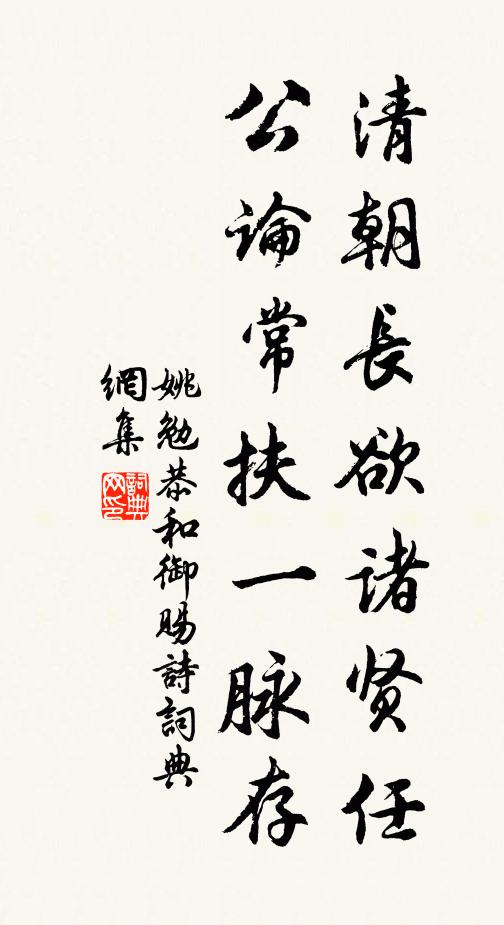 清朝長欲諸贤任
公論常扶一脉存
姚勉恭和御賜詩詞典
網集
詞典网印